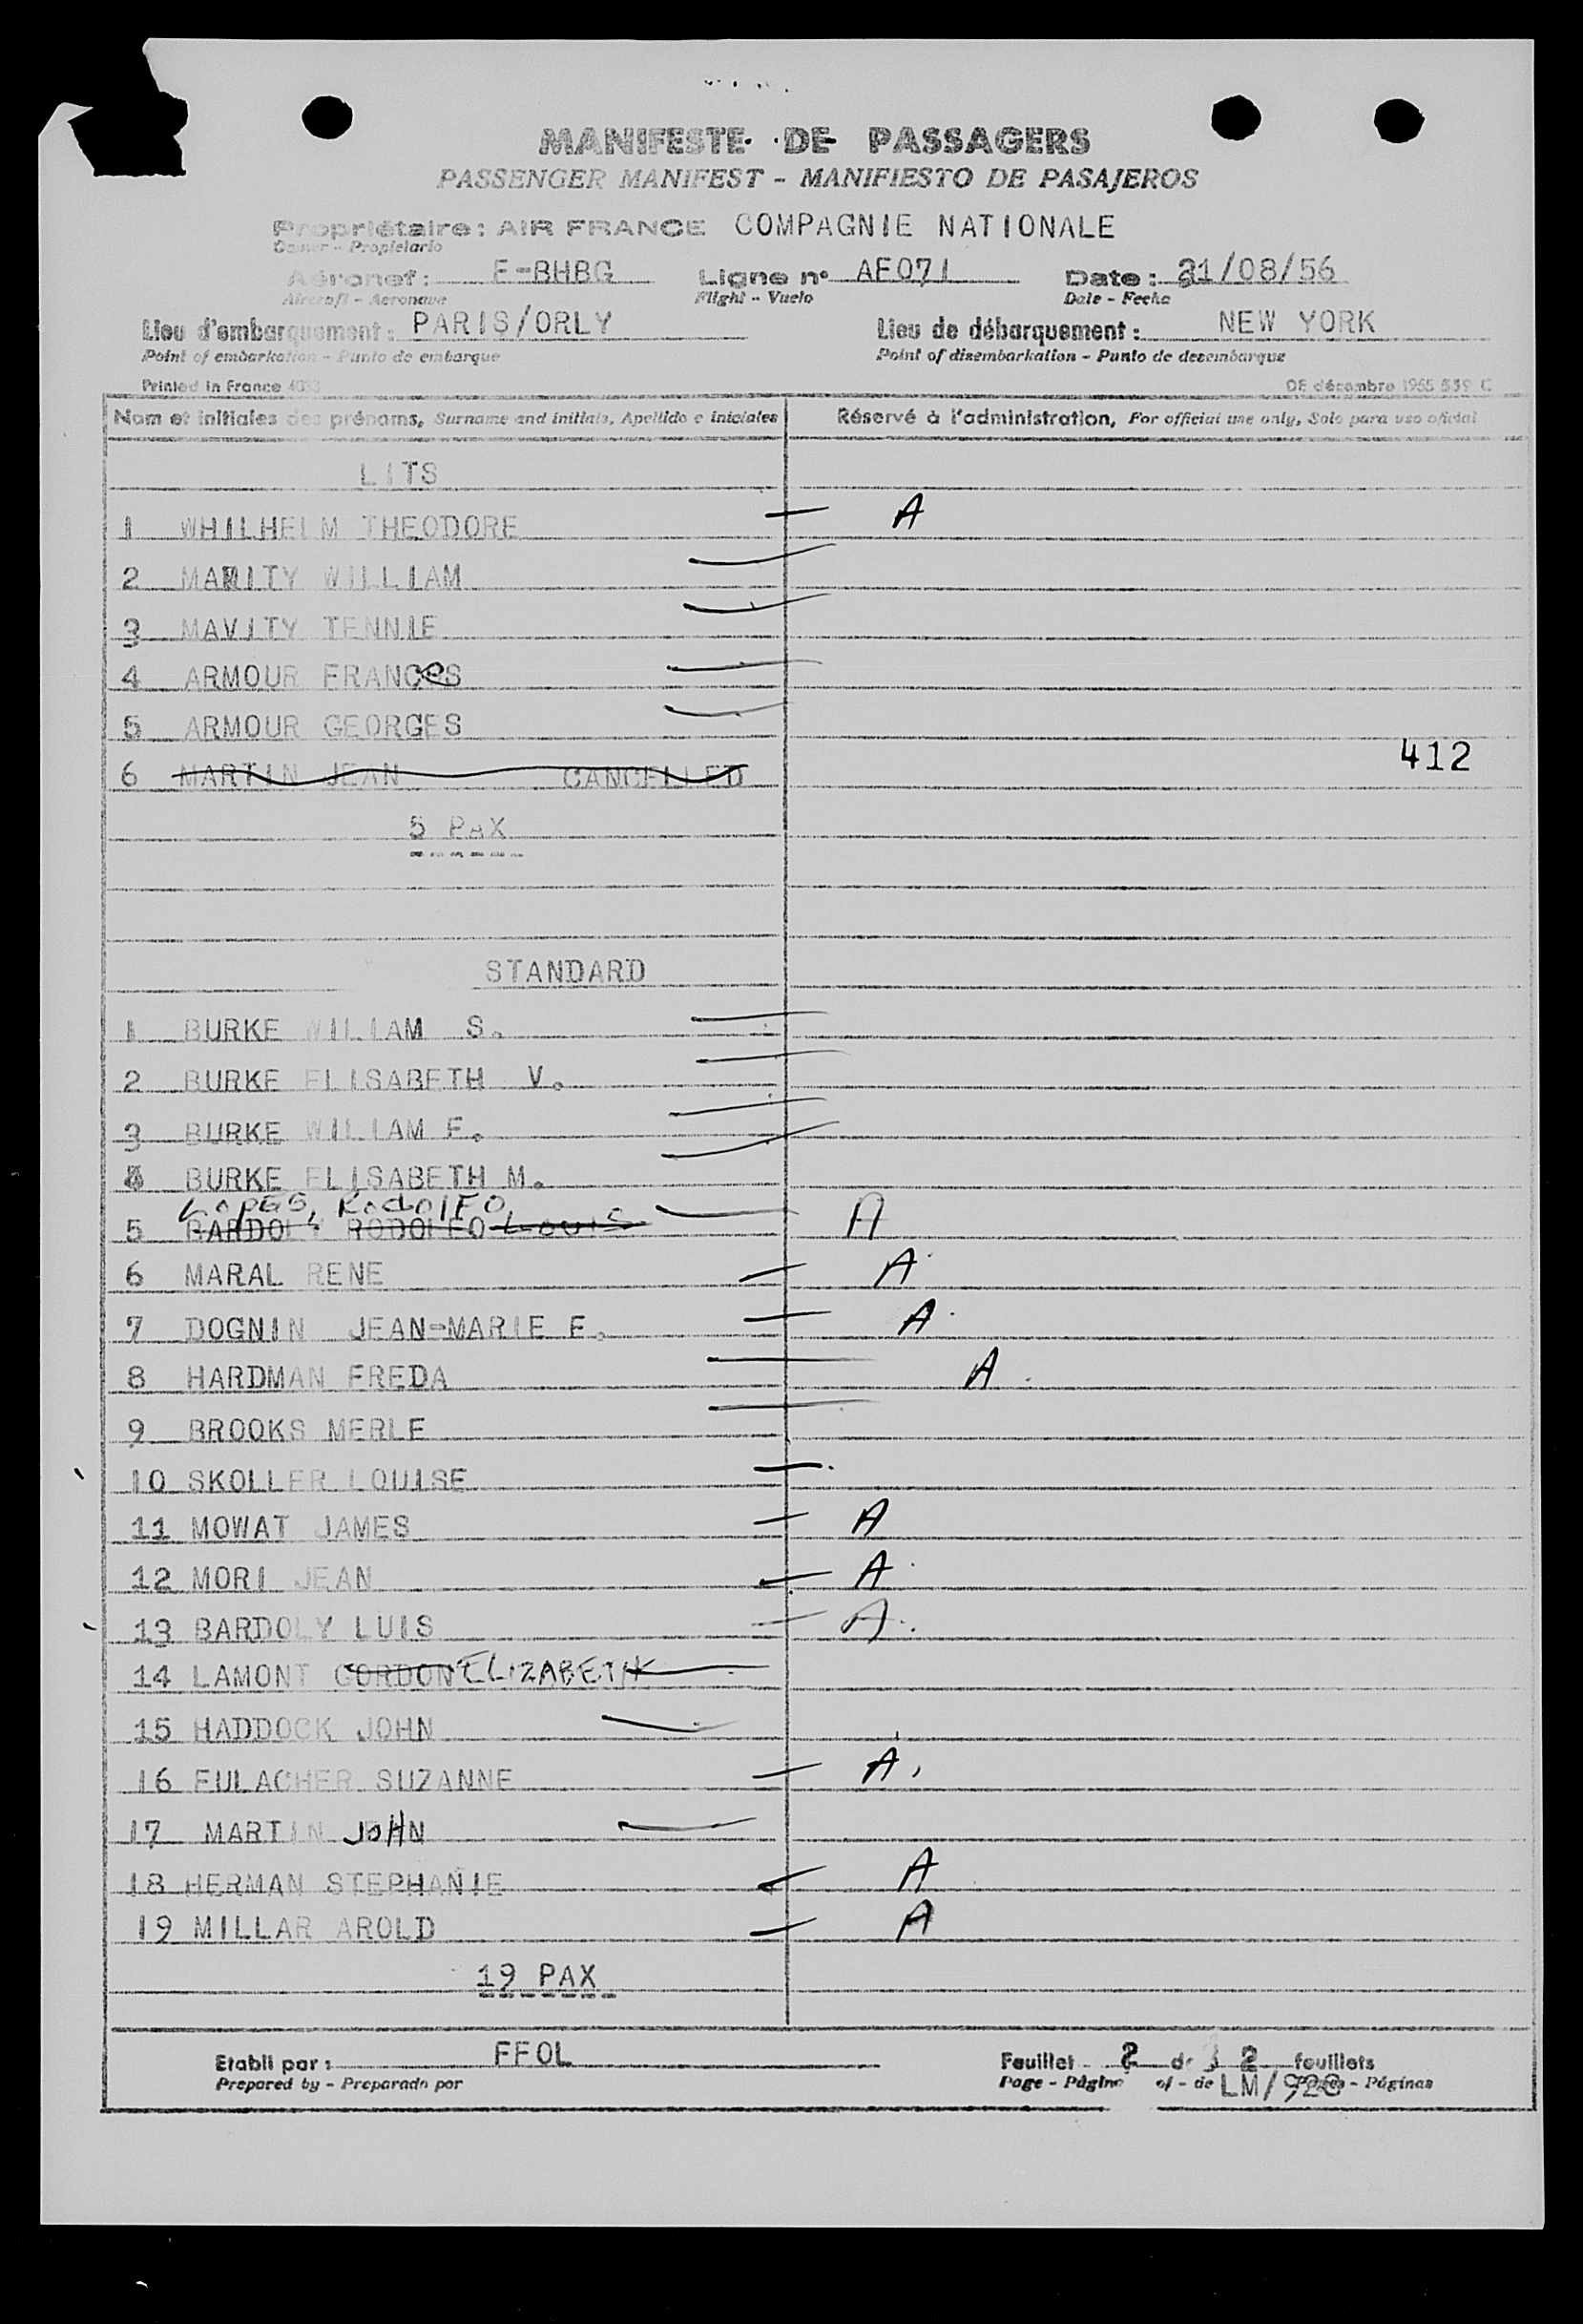 MANIFESTE DE PASSAGERS
PASSENGER MANIFEST - MANIFIESTO DE PASAJEROS
Propriétaire: AIR FRANCE COMPAGNIE NATIONALE
Owner - Propietario
Aéronef: F-BHBG Ligne n° AF071 Date: 31/08/56
Aircraft - Aeronave Flight - Vuelo Date - Fecha
Lieu d'embarquement: PARIS/ORLY Lieu de débarquement: NEW YORK
Point of embarkation - Punto de embarque Point of disembarkation - Punto de desembarque
Printed in France DE décembre 1955 539 C
Nom et initiales des prénoms, Surname and initials, Apellido e iniciales Réservé à l'administration, For official use only, Solo para uso oficial
LITS
1 WHILHELM THEODORE A
2 MAVITY WILLIAM
3 MAVITY TENNIE
4 ARMOUR FRANCES
5 ARMOUR GEORGES
6 MARTIN JEAN CANCELLED 412
5 PAX
STANDARD
1 BURKE WILIAM S.
2 BURKE ELISABETH V.
3 BURKE WILIAM F.
4 BURKE ELISABETH M.
LOPES, RodolFO
5 BARDOLY RODOLFO LOUIS A
6 MARAL RENE A
7 DOGNIN JEAN-MARIE F. A
8 HARDMAN FREDA A
9 BROOKS MERLE
10 SKOLLER LOUISE
11 MOWAT JAMES A
12 MORI JEAN A
13 BARDOLY LUIS A
14 LAMONT GORDON ELIZABETH
15 HADDOCK JOHN
16 FULACHER SUZANNE A
17 MARTIN JOHN
18 HERMAN STEPHANIE A
19 MILLAR AROLD A
19 PAX
Etabli par: FFOL Feuillet 2 de 2 feuillets
Prepared by - Preparado por Page - Página of - de LM/928 Pages - Páginas